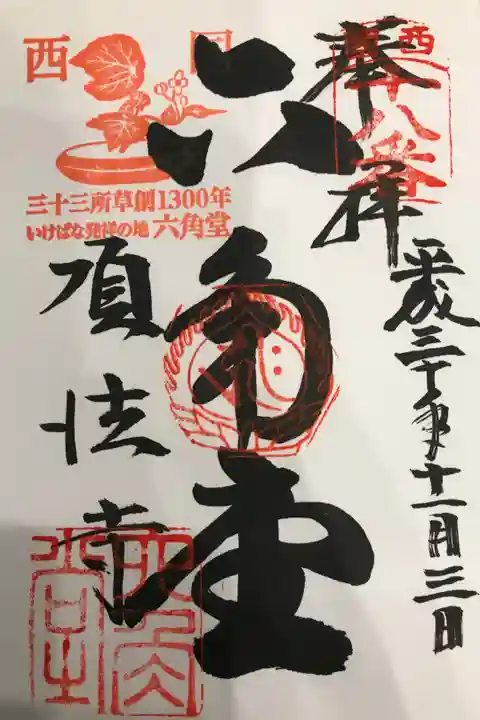 奉拝
西国十八番
平成三十年十一月三日
六角堂
西国
三十三所草創1300年
いけばな発祥の地 六角堂
頂法寺
六角堂